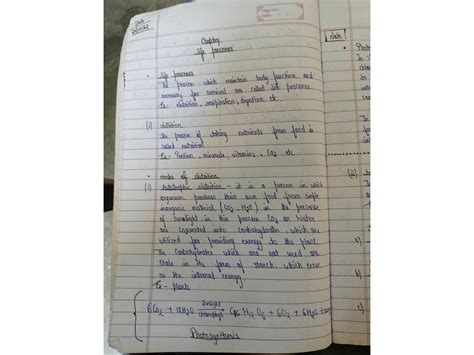 Date
Page No.
Date
Chapter
life processes
• life processes
The process which maintain body function and
necessary for survival are called life process.
Ex - nutrition, respiration, digestion etc.
(i) nutrition
the process of taking nutrients from food is
called nutrition.
Ex - Protien, minerals, vitamins, CO2 etc
• modes of nutrition
(i) Autotrophic nutrition - it is a process in which
organism produces their own food from simple
inorganic material (CO2, H2O) in the presence
of sunlight in this process CO2 or water
are converted into carbohydrates, which are
utilized for providing energy to the plant.
The carbohydrates which are not used are
store in the form of starch, which serve
as the internal energy
Ex - plants
Sunlight
6CO2 + 12H2O → C6H12O6 + 6O2 + 6H2O
chlorophyll
Photosynthesis
Note:
(ii)